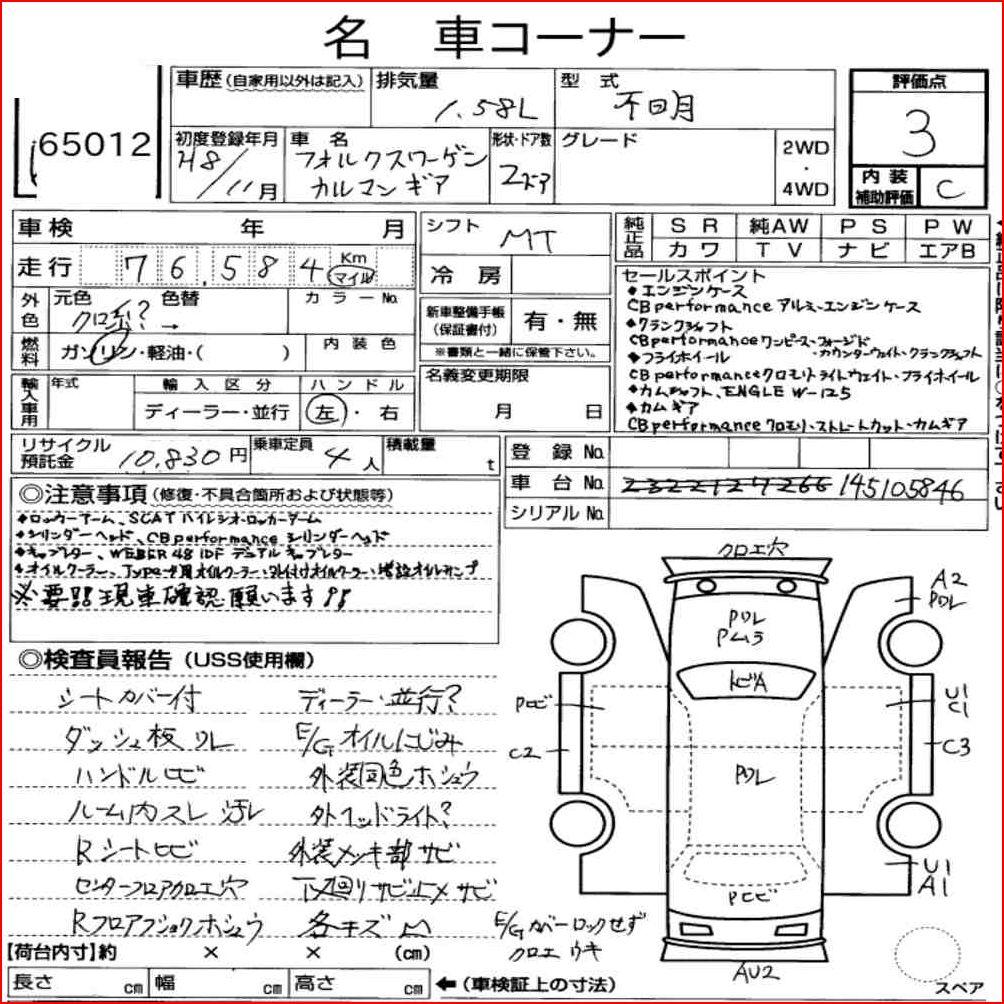 名 車コーナー
65012
車歴(自家用以外は記入)
排気量 1.58L
型式 不明
評価点
3
内装補助評価 C
初度登録年月 H8/11月
車名
フォルクスワーゲン
カルマンギア
形状・ドア数 2ドア
グレード
2WD
・
4WD
車検 年 月
走行 76,584 Km マイル
外色 元色 クロ系? → 色替 カラーNo.
燃料 ガソリン・軽油・( ) 内装色
輸入車用 年式 輸入区分 ディーラー・並行 ハンドル 左・右
シフト MT
冷房
新車整備手帳(保証書付) 有・無
※書類と一緒に保管下さい。
名義変更期限
月 日
純正品 SR 純AW PS PW
カワ TV ナビ エアB
セールスポイント
◆エンジンケース
CBperformance アルミ・エンジンケース
◆クランクシャフト
CBperformanceワンピース・フォージド
・カウンターウェイト・クランクシャフト
◆フライホイール
CBperformanceクロモリライトウェイト・フライホイール
◆カムシャフト、ENGLE W-125
◆カムギア
CBperformance クロモリ・ストレートカット・カムギア
リサイクル預託金 10,830円
乗車定員 4人
積載量 t
登録No.
車台No. 2322127266 145105846
シリアルNo.
◎注意事項(修復・不具合箇所および状態等)
◆ロッカーアーム、SCAT ハイレシオ・ロッカーアーム
◆シリンダーヘッド、CBperformance シリンダーヘッド
◆キャブレター、WEBER 48 IDF デュアルキャブレター
◆オイルクーラー、Type-4用オイルクーラー・外付けオイルクーラー・増設オイルサンプ
※要!!現車確認願います!!
◎検査員報告(USS使用欄)
シートカバー付 ディーラー・並行?
ダッシュ板ワレ E/Gオイルにじみ
ハンドルヒビ 外装同色ホシュウ
ルーム内スレ 汚レ 外ヘッドライト?
Rシートヒビ 外装メッキ部サビ
センターフロアクロエ穴 下メ回リサビ上メサビ
Rフロアフショクホシュウ 各キズ凹
E/Gカバーロックせず
クロエ ウキ
クロエ穴
A2
Pワレ
Pワレ
Pムラ
トビA
Pヒビ
U1
C1
C2
C3
Pワレ
U1
A1
Pヒビ
AU2
スペア
【荷台内寸】約 × × (cm)
長さ cm 幅 cm 高さ cm ←(車検証上の寸法)